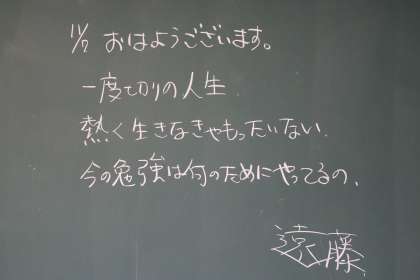 11/7 おはようございます。
一度切りの人生
熱く生きなきゃもったいない.
今の勉強は何のためにやってるの.
遠藤